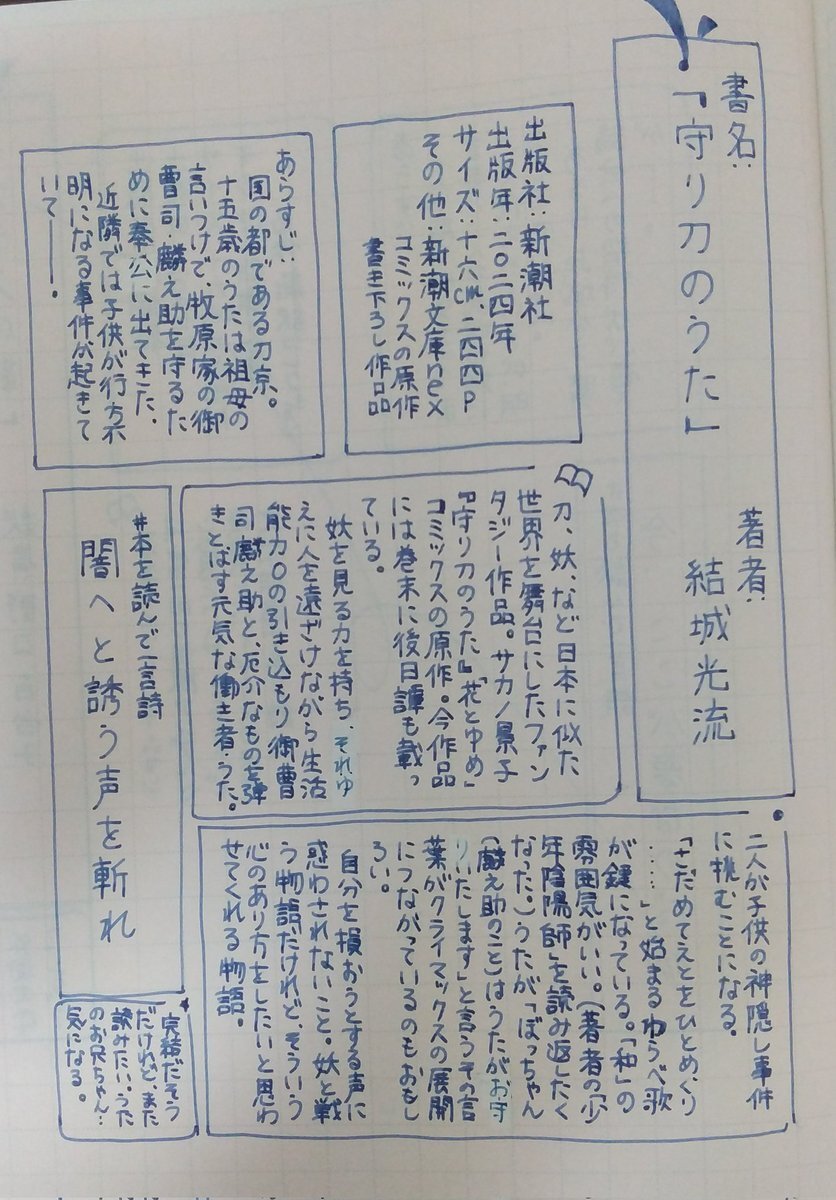 書名:
『守り刀のうた』
著者:
結城光流
出版社:新潮社
出版年:二〇二四年
サイズ:十六cm、二四四P
その他:新潮文庫nex
コミックスの原作
書き下ろし作品
あらすじ:
国の都である刀京。
十五歳のうたは祖母の
言いつけで、牧原家の御
曹司・麟之助を守るた
めに奉公に出てきた。
近隣では子供が行方不
明になる事件が起きて
いて――。
刀、妖、など日本に似た
世界を舞台にしたファン
タジー作品。サカノ景子
『守り刀のうた』「花とゆめ」
コミックスの原作。今作品
には巻末に後日譚も載っ
ている。
妖を見る力を持ち、それゆ
えに人を遠ざけながら生活
能力0の引き込もり御曹
司麟之助と、厄介なものを弾
きとばす元気な働き者・うた。
二人が子供の神隠し事件
に挑むことになる。
「さだめてえとをひとめぐり
……」と始まるわらべ歌
が鍵になっている。「和」の
雰囲気がいい。(著者の『少
年陰陽師』を読み返したく
なった。)うたが「ぼっちゃん
(麟之助のこと)はうたがお守
りいたします」と言うその言
葉がクライマックスの展開
につながっているのもおもし
ろい。
自分を損おうとする声に
惑わされないこと。妖と戦
う物語だけれど、そういう
心のあり方をしたいと思わ
せてくれる物語。
#本を読んで一言詩
闇へと誘う声を斬れ
完結だそう
だけれど、また
読みたい。うた
のお兄ちゃん…
気になる。